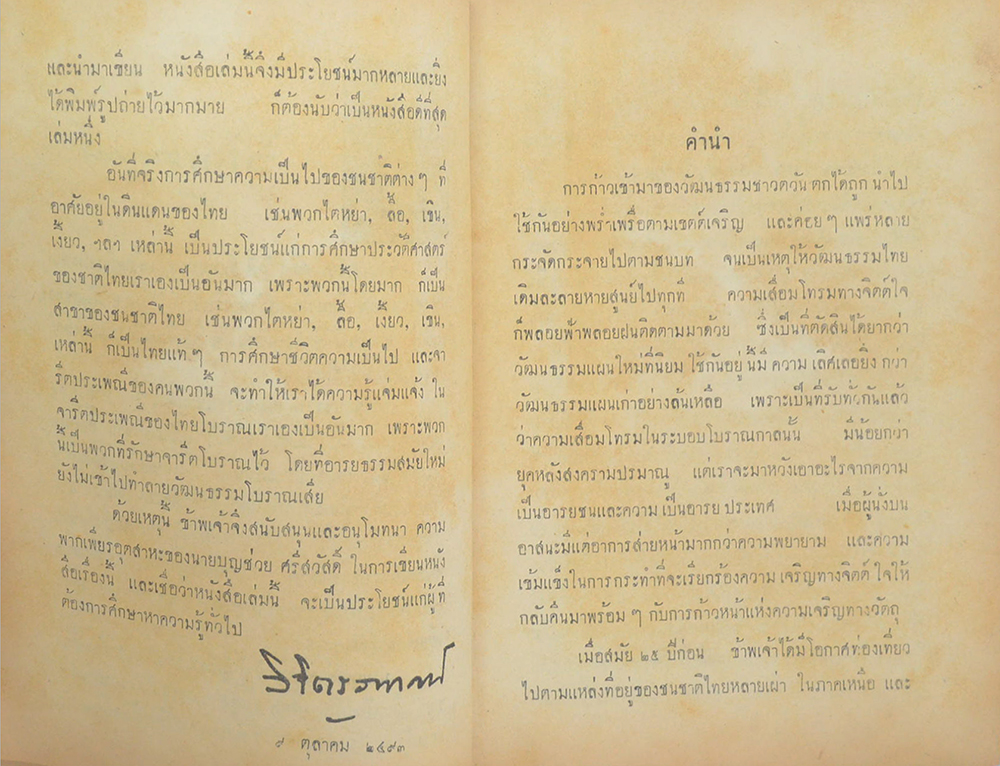 และนำมาเขียน หนังสือเล่มนี้จึงมีประโยชน์มากหลายและยิ่ง
ได้พิมพ์รูปถ่ายไว้มากมาย ก็ต้องนับว่าเป็นหนังสือดีที่สุด
เล่มหนึ่ง
อันที่จริงการศึกษาความเป็นไปของชนชาติต่าง ๆ ที่
อาศัยอยู่ในดินแดนของไทย เช่นพวกไตหย่า, ลื้อ, เขิน,
เงี้ยว, ฯลฯ เหล่านี้ เป็นประโยชน์แก่การศึกษาประวัติศาสตร์
ของชาติไทยเราเองเป็นอันมาก เพราะพวกนี้โดยมาก ก็เป็น
สาขาของชนชาติไทย เช่นพวกไตหย่า, ลื้อ, เงี้ยว, เขิน,
เหล่านี้ ก็เป็นไทยแท้ ๆ การศึกษาชีวิตความเป็นไป และจา
รีตประเพณีของคนพวกนี้ จะทำให้เราได้ความรู้แจ่มแจ้ง ใน
จารีตประเพณีของไทยโบราณเราเองเป็นอันมาก เพราะพวก
นี้เป็นพวกที่รักษาจารีตโบราณไว้ โดยที่อารยธรรมสมัยใหม่
ยังไม่เข้าไปทำลายวัฒนธรรมโบราณเสีย
ด้วยเหตุนี้ ข้าพเจ้าจึงสนับสนุนและอนุโมทนา ความ
พากเพียรอุตสาหะของนายบุญช่วย ศรีสวัสดิ์ ในการเขียนหนัง
สือเรื่องนี้ และเชื่อว่าหนังสือเล่มนี้ จะเป็นประโยชน์แก่ผู้ที่
ต้องการศึกษาหาความรู้ทั่วไป
๙ ตุลาคม ๒๔๙๓
คำนำ
การก้าวเข้ามาของวัฒนธรรมชาวตวันตกได้ถูก นำไป
ใช้กันอย่างพร่ำเพรื่อตามเขตต์เจริญ และค่อย ๆ แพร่หลาย
กระจัดกระจายไปตามชนบท จนเป็นเหตุให้วัฒนธรรมไทย
เดิมละลายหายสูญไปทุกที่ ความเสื่อมโทรมทางจิตต์ใจ
ก็พลอยฟ้าพลอยฝนติดตามมาด้วย ซึ่งเป็นที่ตัดสินได้ยากว่า
วัฒนธรรมแผนใหม่ที่นิยม ใช้กันอยู่ นี้มี ความ เลิศเลอยิ่ง กว่า
วัฒนธรรมแผนเก่าอย่างล้นเหลือ เพราะเป็นที่รับทั่วกันแล้ว
ว่าความเสื่อมโทรมในระบอบโบราณกาลนั้น มีน้อยกว่า
ยุคหลังสงครามปรมาณู แต่เราจะมาหวังเอาอะไรจากความ
เป็นอารยชนและความ เป็นอารย ประเทศ เมื่อผู้นั่งบน
อาสนะมีแต่อาการส่ายหน้ามากกว่าความพยายาม และความ
เข้มแข็งในการกระทำที่จะเรียกร้องความ เจริญทางจิตต์ ใจให้
กลับคืนมาพร้อม ๆ กับการก้าวหน้าแห่งความเจริญทางวัตถุ
เมื่อสมัย ๒๕ ปีก่อน ข้าพเจ้าได้มีโอกาศท่องเที่ยว
ไปตามแหล่งที่อยู่ของชนชาติไทยหลายเผ่า ในภาคเหนือ และ